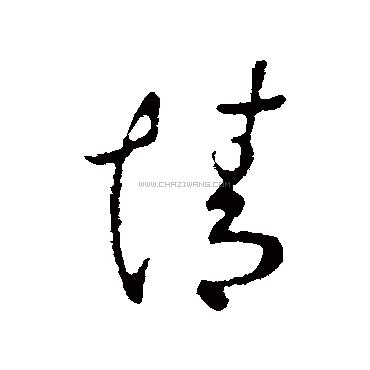 情
WWW.CHAZIWANG.COM